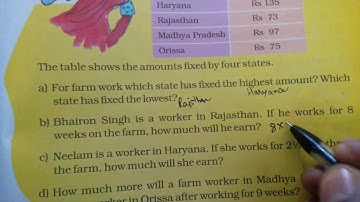 Haryana Rs 135
Rajasthan Rs 73
Madhya Pradesh Rs 97
Orissa Rs 75
The table shows the amounts fixed by four states.
a) For farm work which state has fixed the highest amount? Which
Haryana
state has fixed the lowest?
b) Bhairon Singh is a worker in Rajasthan. If he works for 8
weeks on the farm, how much will he earn? 8
c) Neelam is a worker in Haryana. If she works for 2½
the farm, how much will she earn?
d) How much more will a farm worker in Madhya
in Orissa after working for 9 weeks?